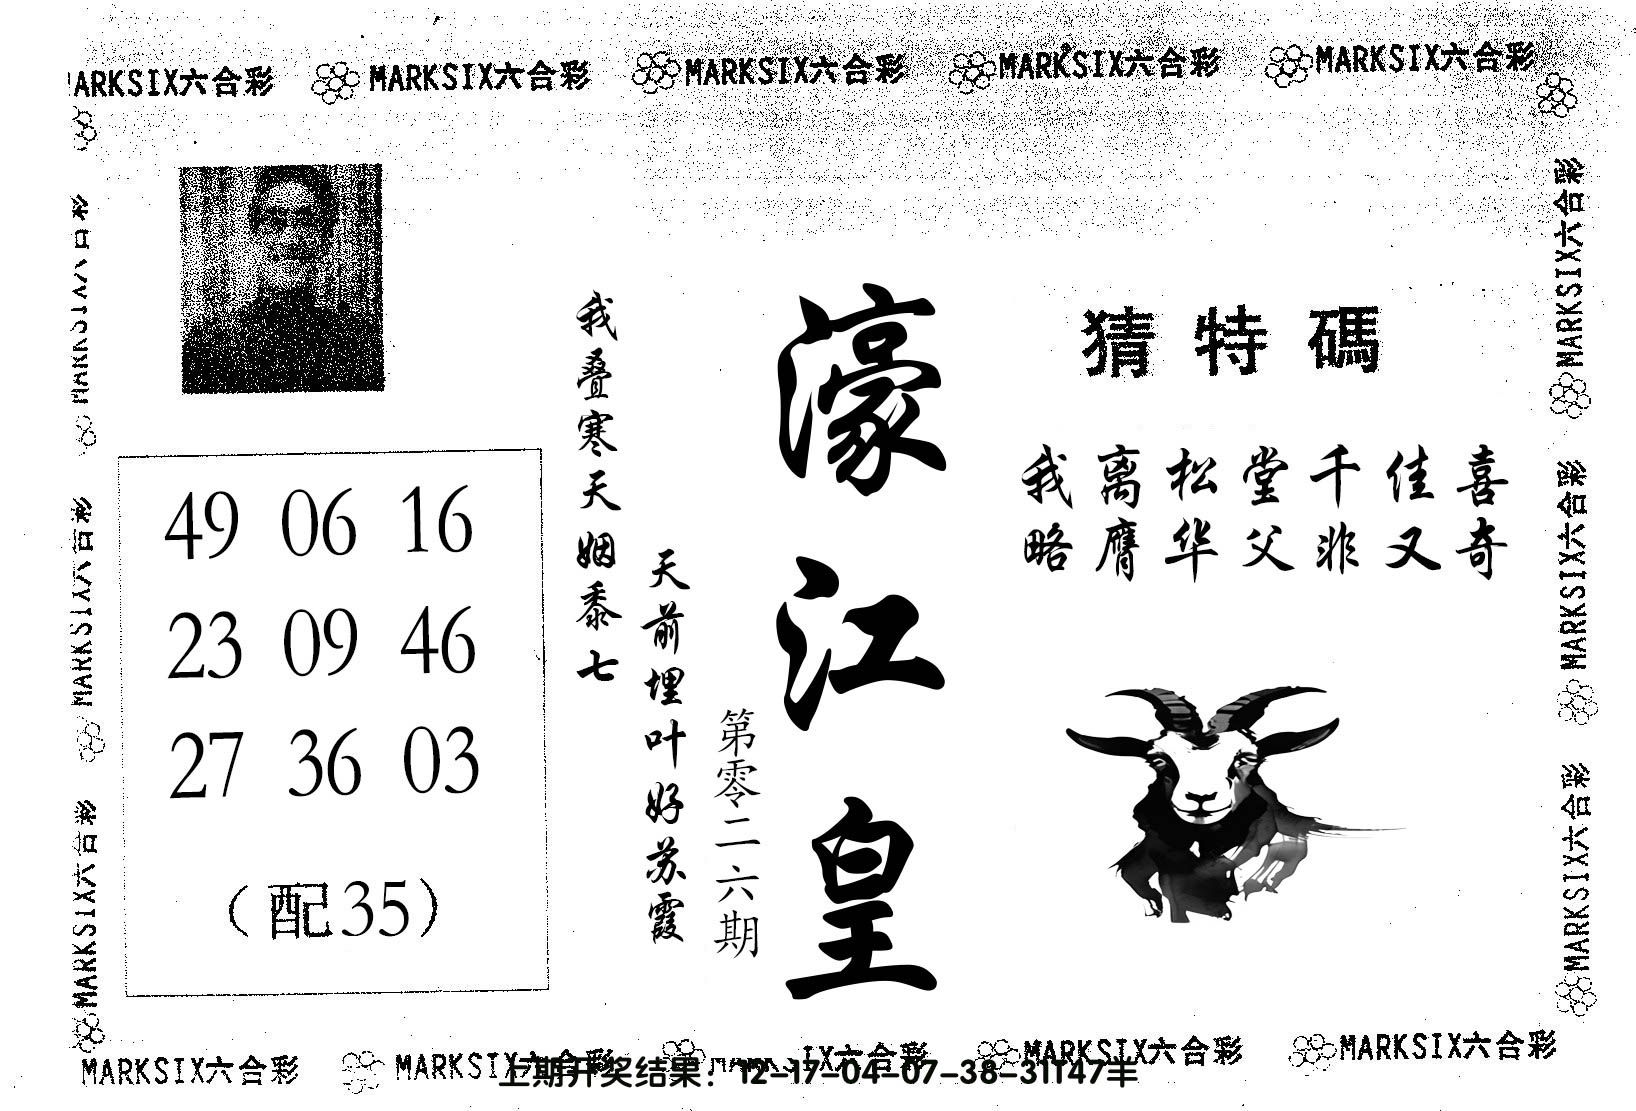 MARKSIX六合彩 MARKSIX六合彩 MARKSIX六合彩 MARKSIX六合彩 MARKSIX六合彩
猜特碼
我离松堂千佳喜
略膺华父非又奇
濠江皇
第零二六期
我叠寒天姻黍七
天前埋叶好苏霞
49 06 16
23 09 46
27 36 03
（配35）
MARKSIX六合彩
MARKSIX六合彩
MARKSIX六合彩
MARKSIX六合彩
MARKSIX六合彩
MARKSIX六合彩
MARKSIX六合彩 MARKSIX六合彩 MARKSIX六合彩 MARKSIX六合彩
上期开奖结果：12-17-04-07-38-31T47羊